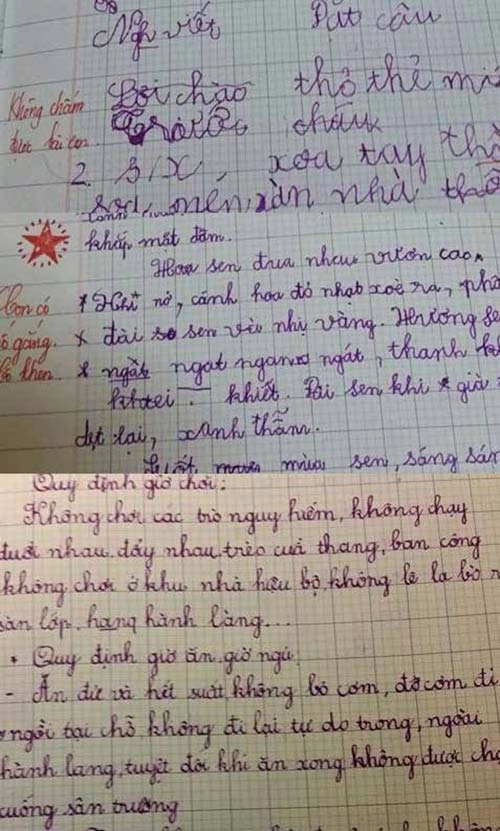 Ngh viết Đặt câu
Không chấm Lời chào thỏ thẻ
được bài con. Trước cháu
2. s/x, xoa tay
sợi, mên, sàn nhà
khắp mặt đầm.
Hoa sen đua nhau vươn cao.
Con có * Khi nở, cánh hoa đỏ nhạt xoè ra,
cố gắng. x đài so sen và nhị vàng. Hương
* ngặt ngat ngan ngát, thanh
khiết. Đài sen khi * già
dẹt lại, xanh thẫm.
mùa sen, sáng
Quy định giờ chơi:
Không chơi các trò nguy hiểm, không chạy
đuổi nhau, đẩy nhau, trèo cầu thang, ban công
không chơi ở khu nhà hiệu bộ, không lê la bò
sàn lớp, hang hành làng...
• Quy định giờ ăn, giờ ngủ
- Ăn đủ và hết suất, không bỏ cơm, đổ cơm đi
ngồi tại chỗ không đi lại tự do trong, ngoài
hành lang, tuyệt đối khi ăn xong không được
xuống sân trường